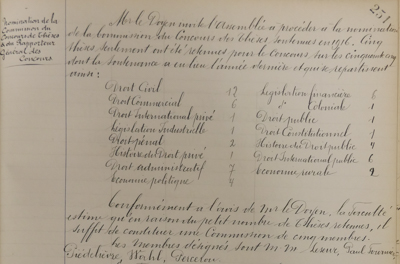 251
Nomination de la
Commission du
Concours de Thèses
& du Rapporteur
Général des
Concours
Mr le Doyen invite l'assemblée à procéder à la nomination
de la Commission du Concours des Thèses soutenues en 1916. Cinq
thèses seulement ont été retenues pour le Concours, sur les cinquante cinq
dont la soutenance a eu lieu l'année dernière et qui se répartissent
ainsi :
Droit Civil 12 Législation financière 6
Droit Commercial 6 d° Coloniale 1
Droit International privé 1 Droit public 1
Législation Industrielle 1 Droit Constitutionnel 1
Droit pénal 2 Histoire du Droit public 4
Histoire du Droit privé 1 Droit International public 6
Droit administratif 7 Economie sociale 2
Economie politique 4
Conformément à l'avis de Mr le Doyen, la Faculté
estime qu'en raison du petit nombre de thèses retenues, il
suffit de constituer une Commission de cinq membres.
Les membres désignés sont M.M.
Piédelièvre, Wahl, Percerou